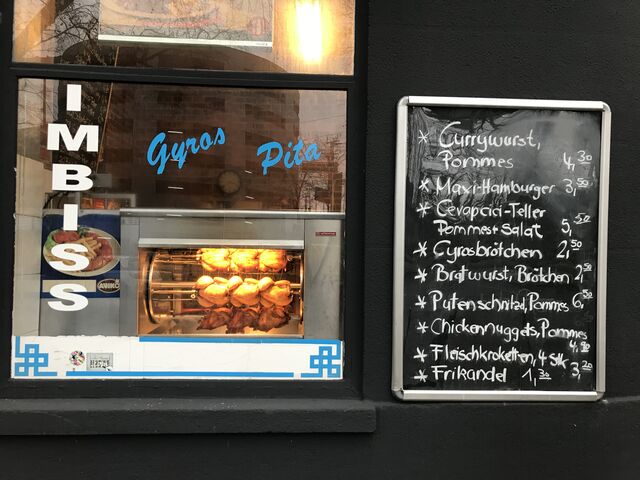 IMBISS
Gyros Pita
AVIKO
* Currywurst,
Pommes 4,30
* Maxi-Hamburger 3,50
* Cevapcici-Teller
Pommes+Salat 5,50
* Gyrosbrötchen 2,50
* Bratwurst, Brötchen 2,50
* Putenschnitzel, Pommes 6,50
* Chickennuggets, Pommes
4,90
* Fleischkroketten, 4 Stk
3,20
* Frikandel 1,30